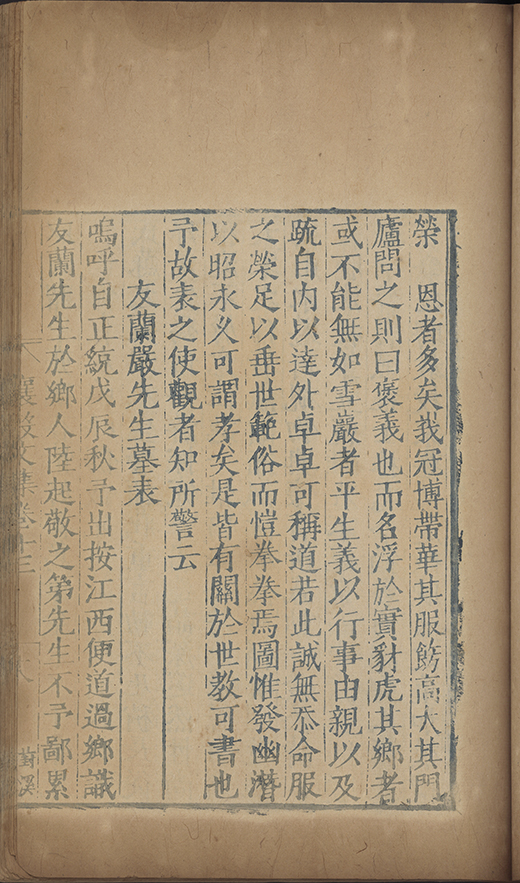 榮　恩者多矣我冠博帶華其服飭高大其門
廬問之則曰褒義也而名浮於實豺虎其鄉者
或不能無如雪巖者平生義以行事由親以及
疏自内以達外卓卓可稱道若此誠無忝命服
之榮足以垂世範俗而愷拳拳焉圖惟發幽潛
以昭永久可謂孝矣是皆有關於世教可書也
予故表之使觀者知所警云
友蘭嚴先生墓表
嗚呼自正統戊辰秋予出按江西便道過鄉識
友蘭先生於鄉人陸起敬之第先生不予鄙累
襄毅文集卷十三